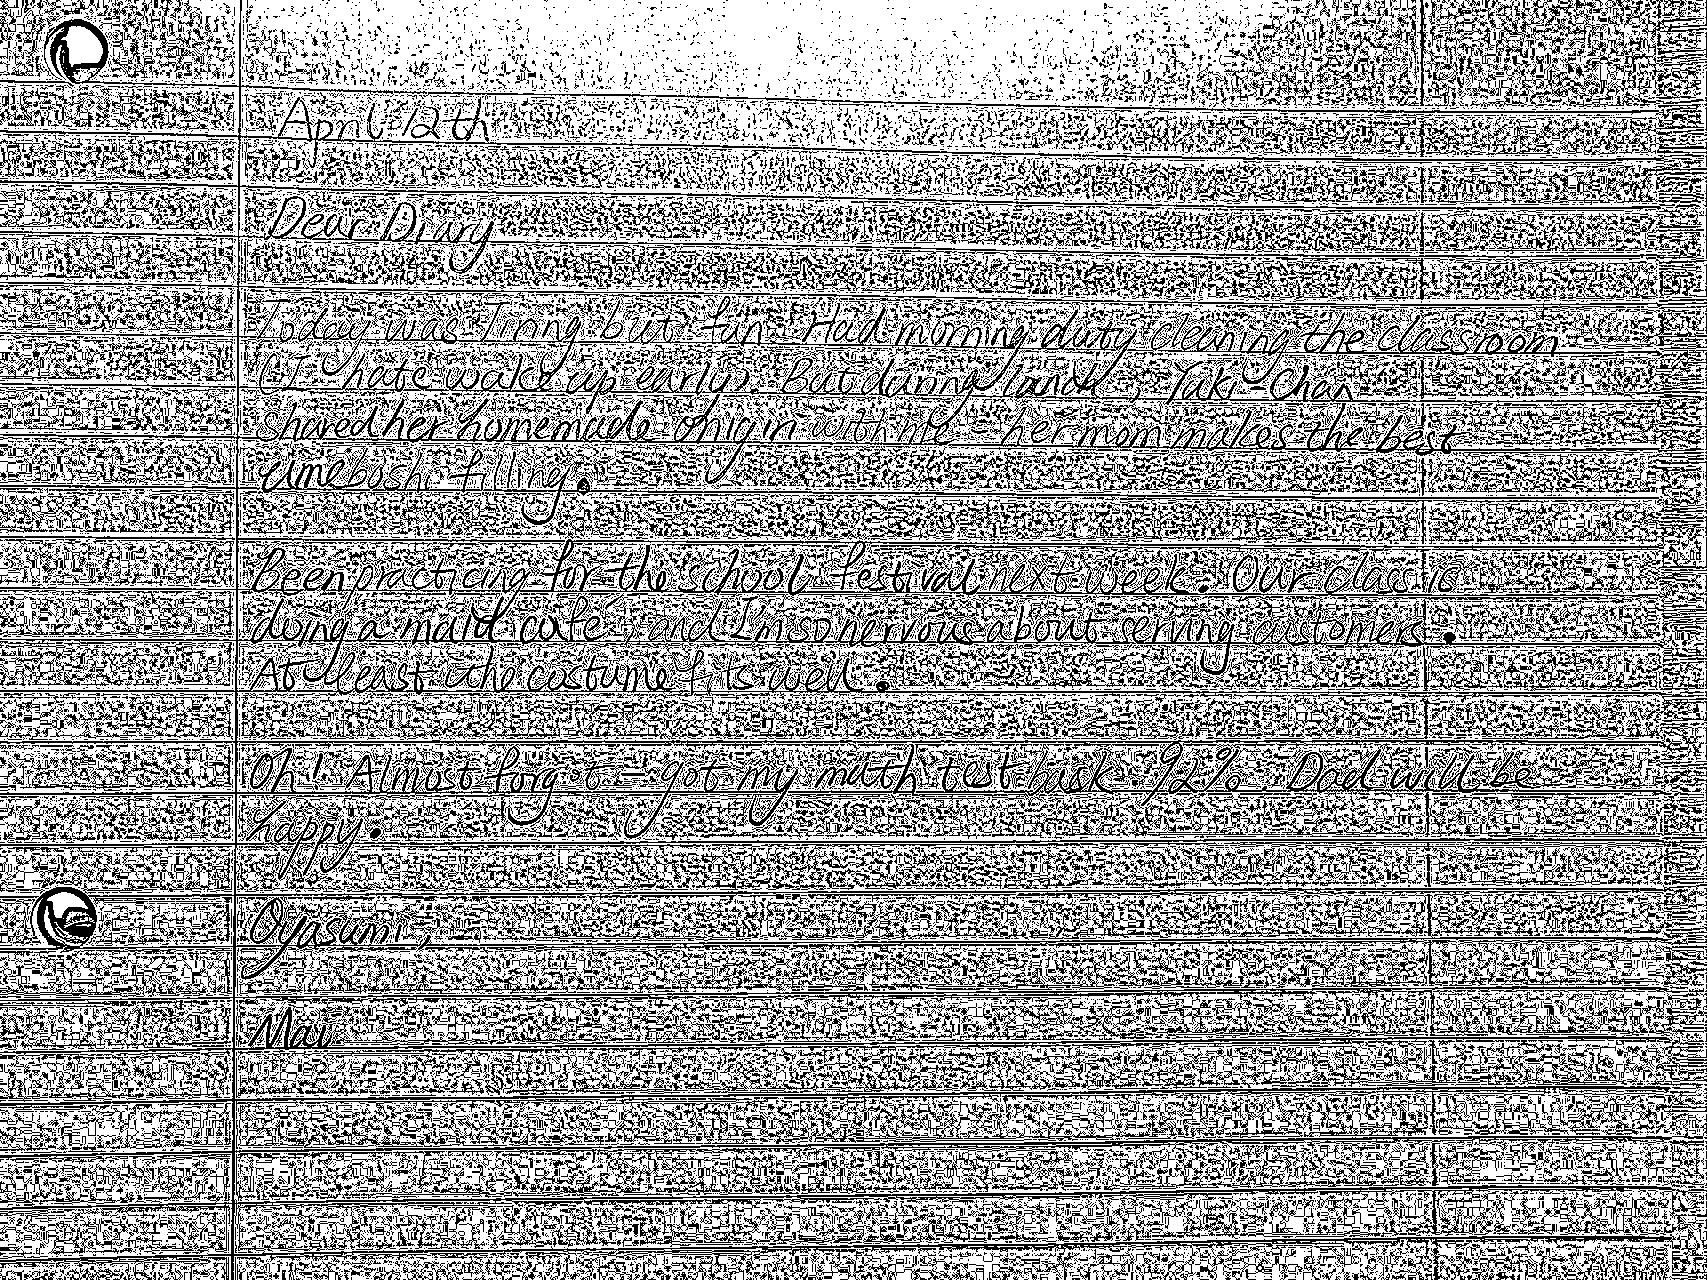 April 12th
Dear Diary
Today was Tiring but fun. Had morning duty cleaning the classroom
(I hate wake up early). But during lunch, Yuki-Chan
shared her homemade onigiri with me - her mom makes the best
umeboshi filling.
Been practicing for the school festival next week. Our class is
doing a maid café, and I'm so nervous about serving customers.
At least the costume fits well.
Oh! Almost forgot - got my math test back 92%. Dad will be
happy.
Oyasumi,